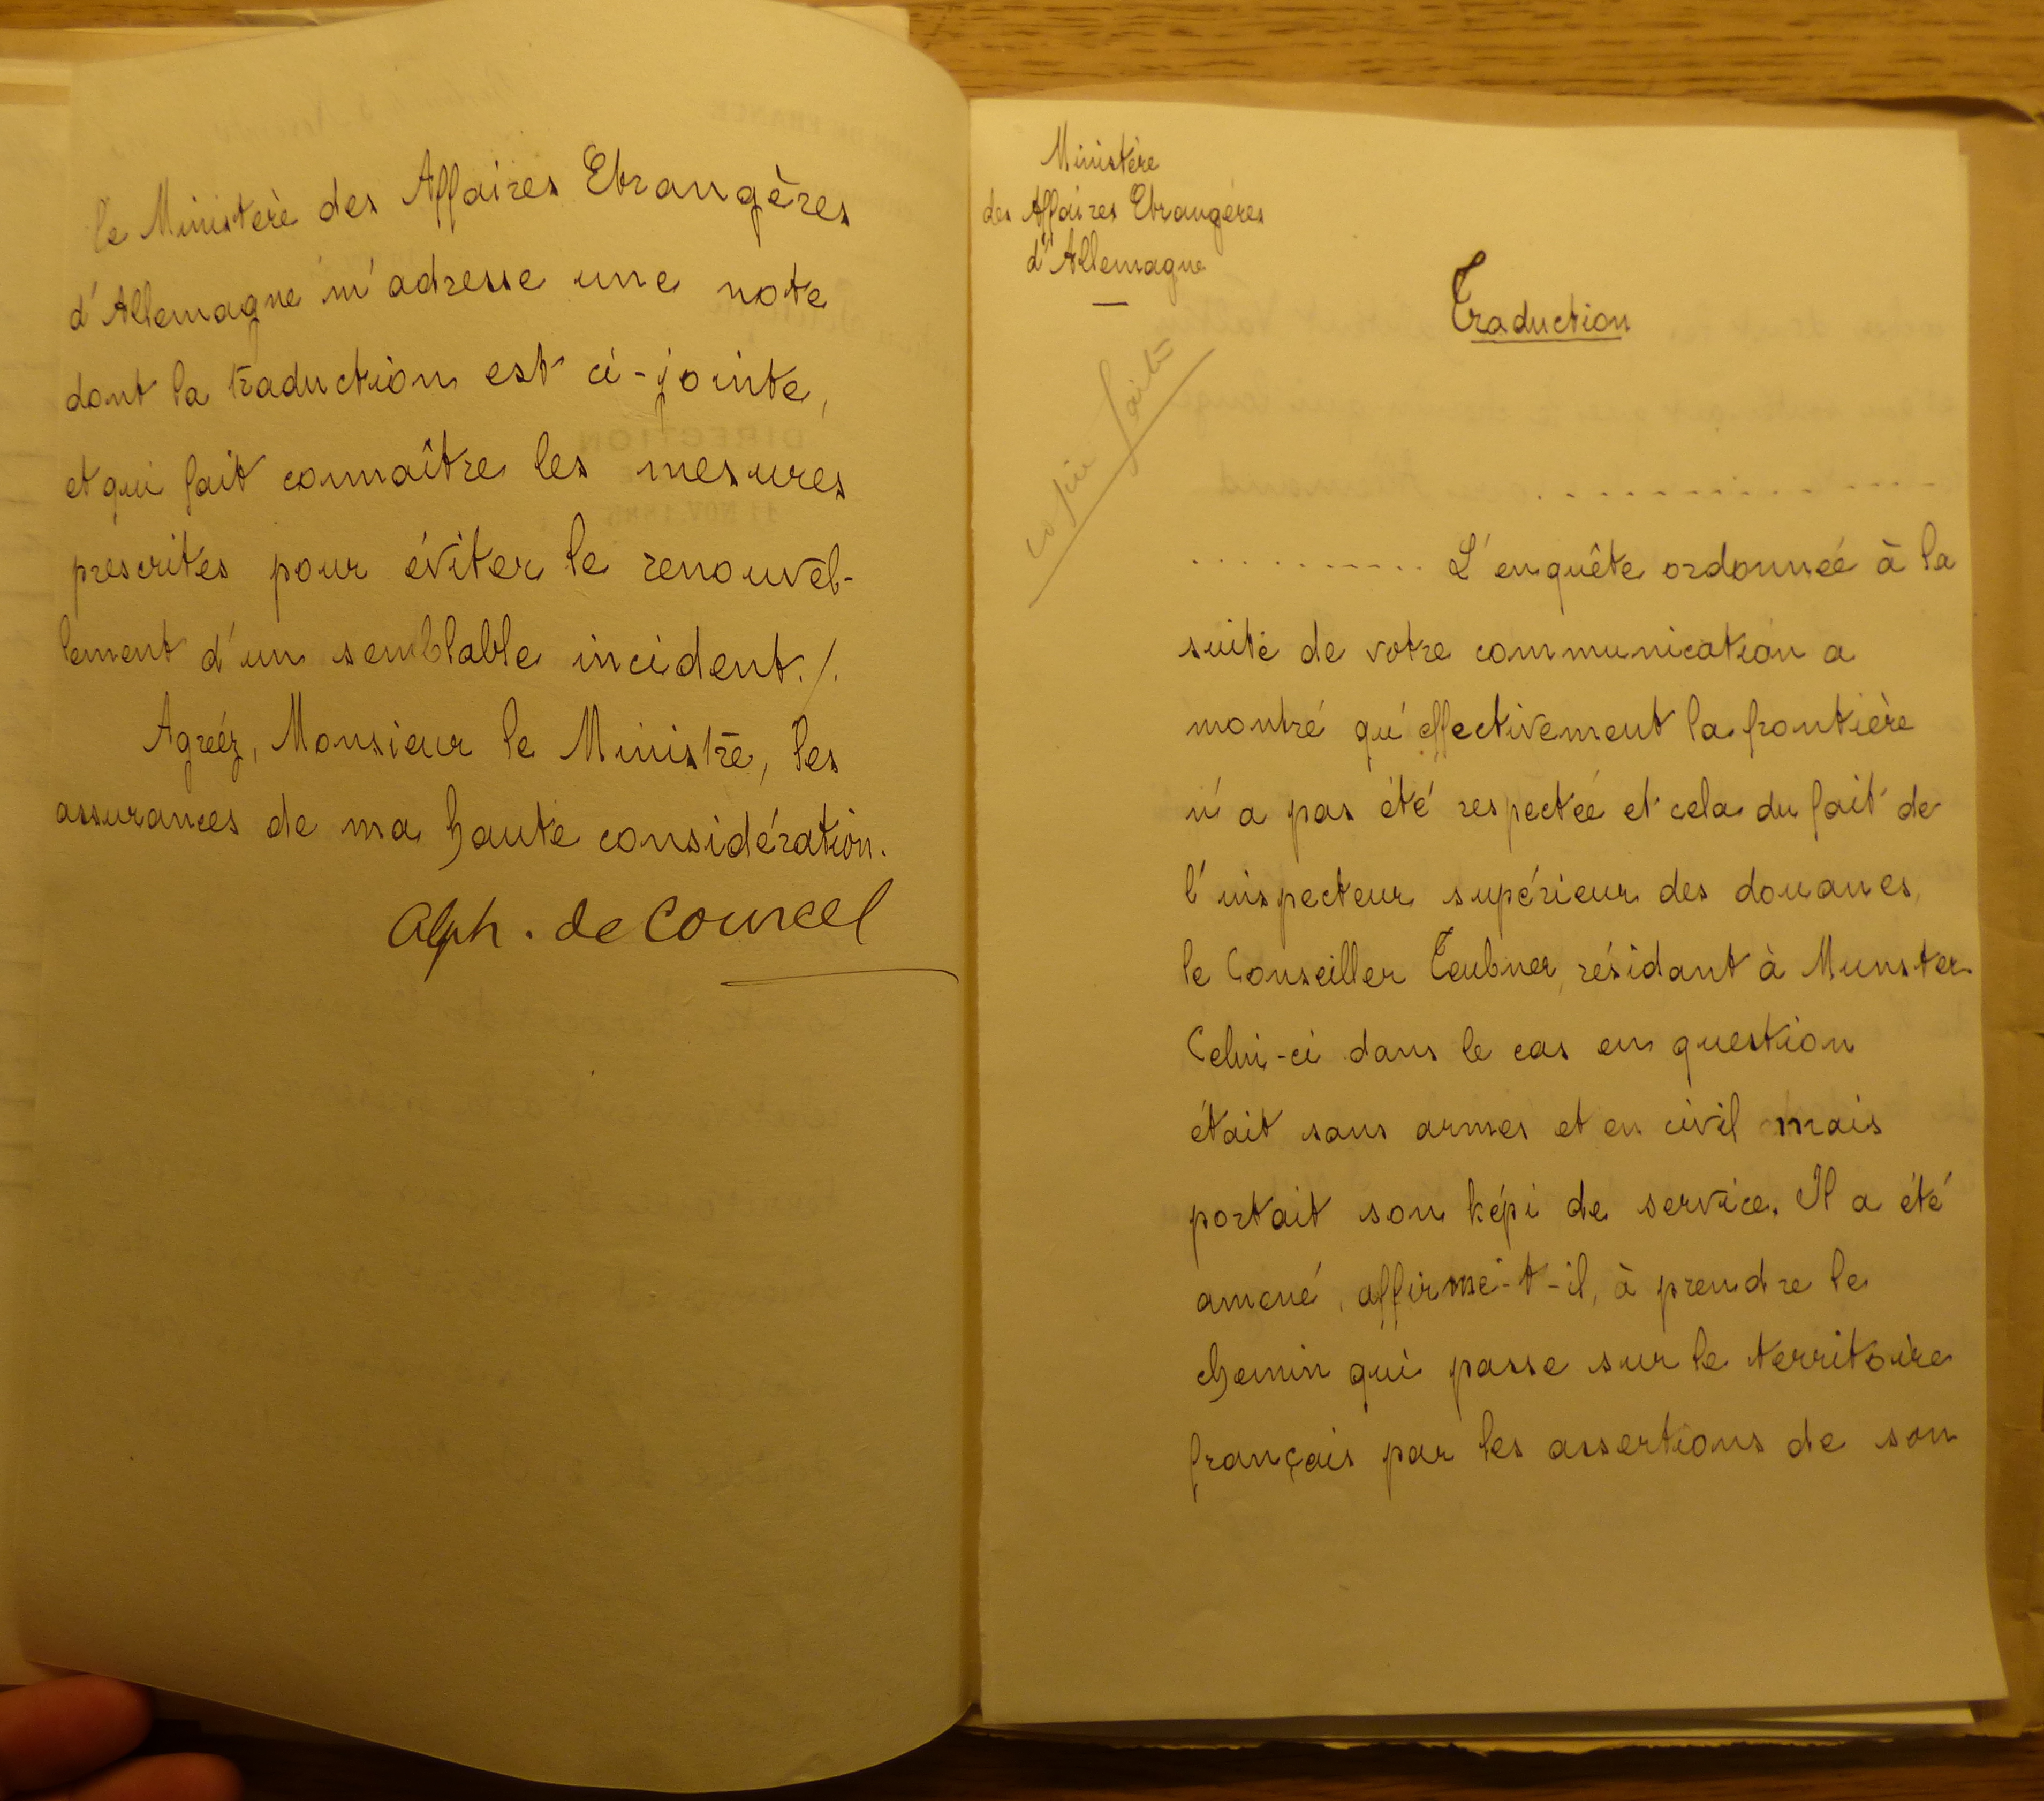 le Ministère des Affaires Etrangères
d'Allemagne m'adresse une note
dont la traduction est ci-jointe,
et qui fait connaître les mesures
prescrites pour éviter le renouvel-
lement d'un semblable incident./.
Agréez, Monsieur le Ministre, les
assurances de ma haute considération.
Alph. de Courcel
Ministère
des Affaires Etrangères
d'Allemagne
Traduction
copie faite
. . . . . . . . . . . . . .
. . . . . . . . . . . L'enquête ordonnée à la
suite de votre communication a
montré qu'effectivement la frontière
n'a pas été respectée et cela du fait de
l'inspecteur supérieur des douanes,
le Conseiller Teubner, résidant à Munster.
Celui-ci dans le cas en question
était sans armes et en civil mais
portait son képi de service. Il a été
amené, affirme-t-il, à prendre le
chemin qui passe sur le territoire
français par les assertions de son